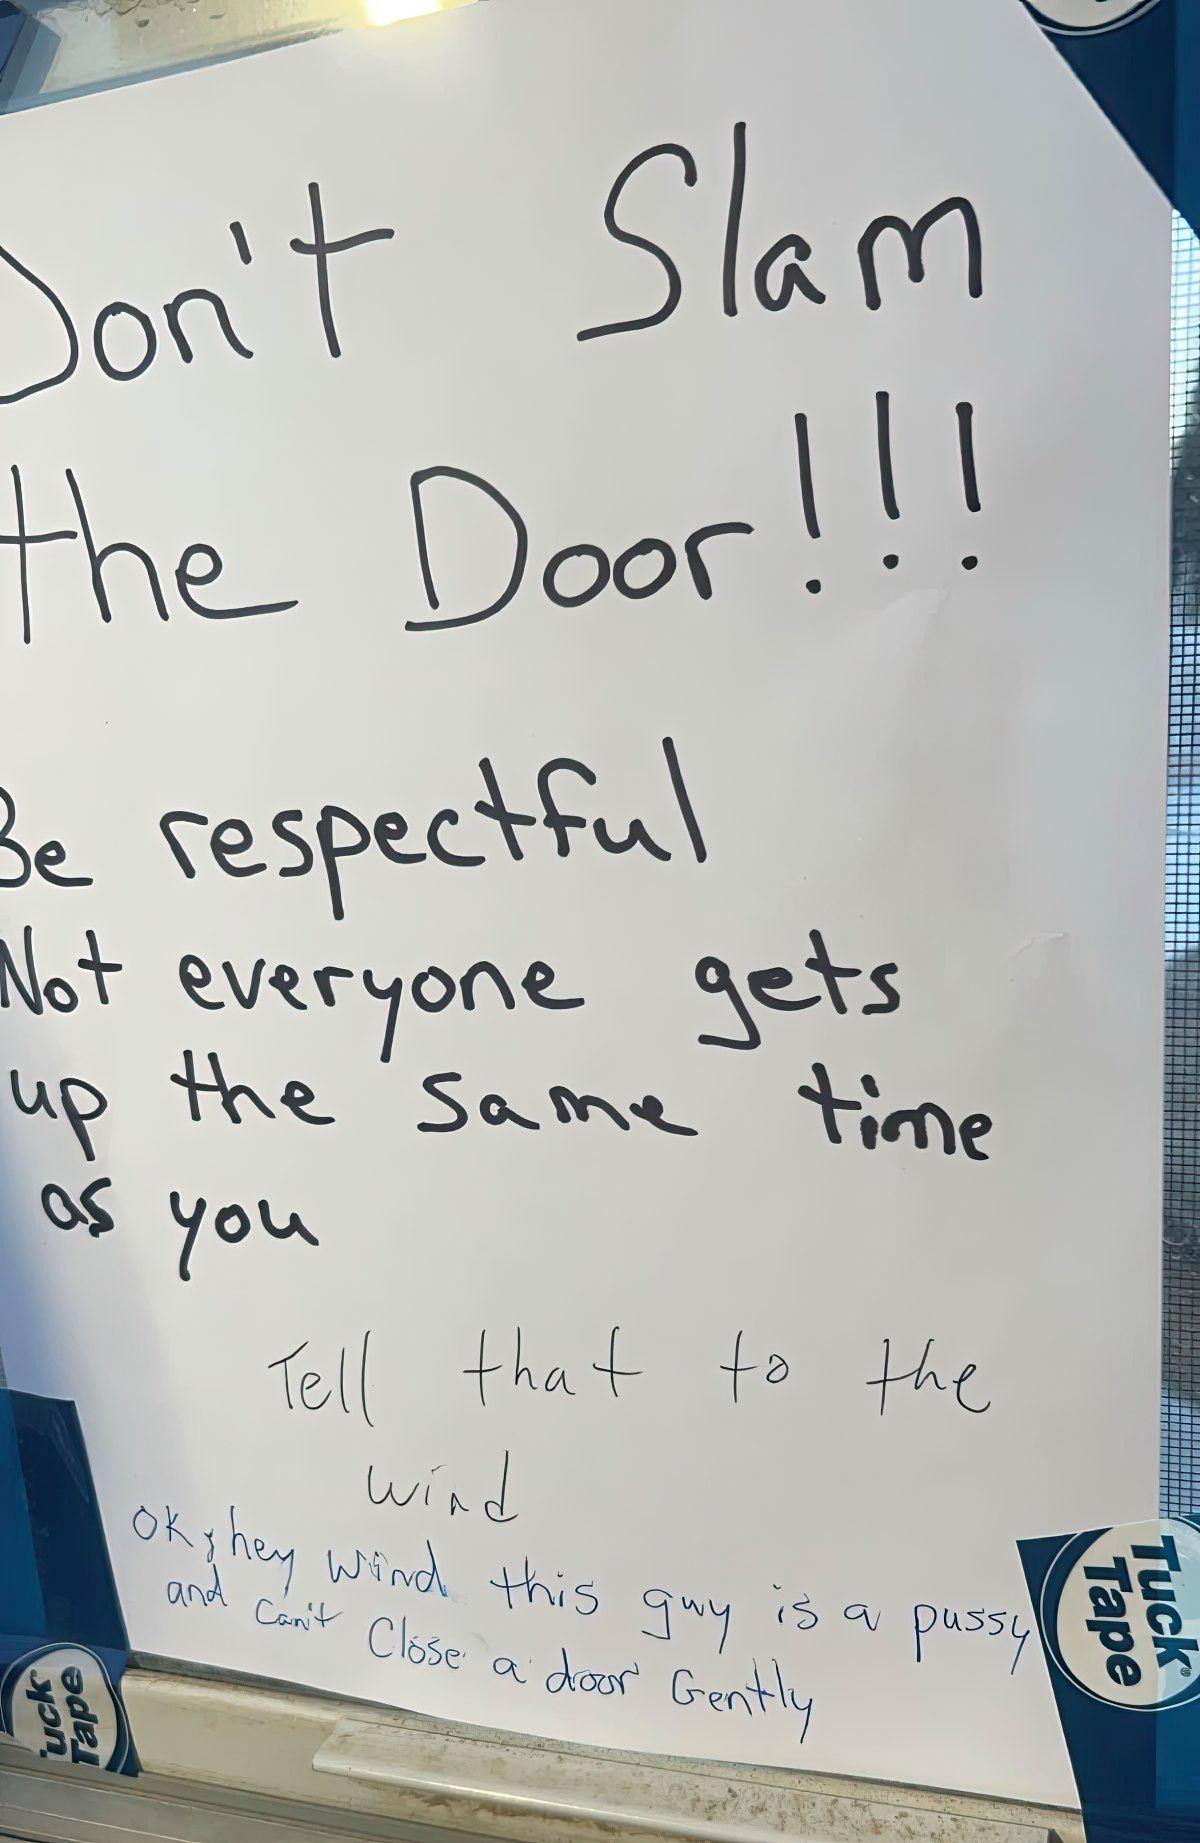 Don't Slam
the Door!!!
Be respectful
Not everyone gets
up the same time
as you
Tell that to the
wind
OK, hey wind this guy is a pussy
and Can't Close a door Gently
Tuck®
Tape
Tuck
Tape